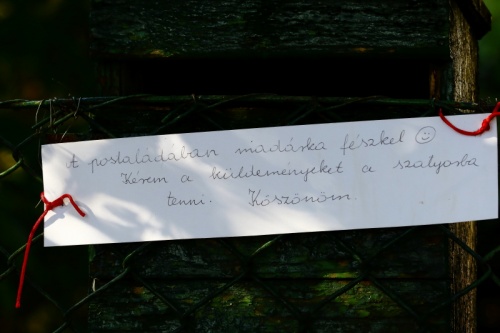 A postaládában madárka fészkel ☺
Kérem a küldeményeket a szatyorba
tenni. Köszönöm.